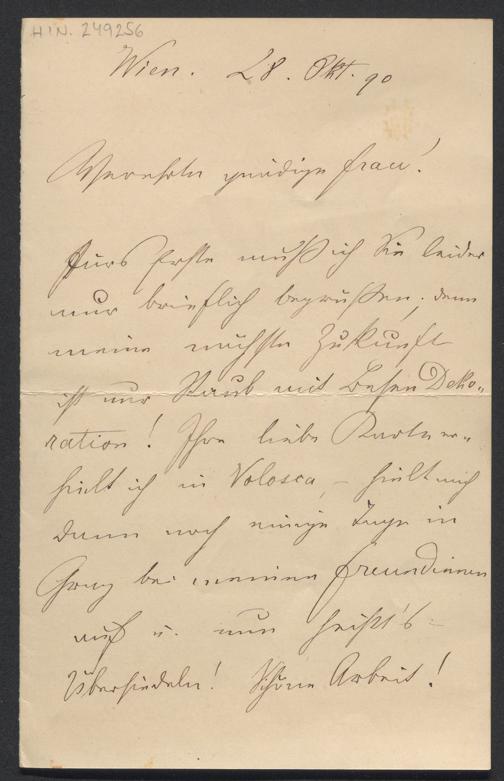 HIN. 249256
Wien. 28. Okt. 90
Verehrte gnädige Frau!
Fürs Erste muß ich Sie leider
nur brieflich begrüßen, denn
meine nächste Zukunft
ist nur Staub mit Besen Deko-
ration! Ihre liebe Karte er-
hielt ich in Volosca, – hielt mich
dann noch einige Tage in
Graz bei meinen Freundinnen
auf u. nun heißt's =
Übersiedeln! Schöne Arbeit!